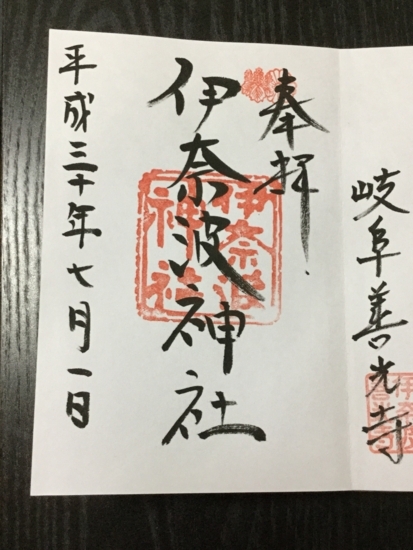 岐阜善光寺
奉拝
伊奈波神社
伊奈波
神社
平成三十年七月一日